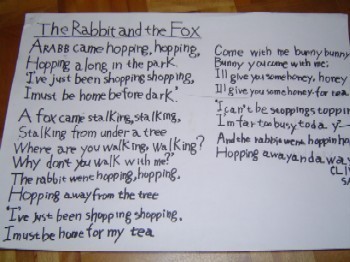 The Rabbit and the Fox
A RABB came hopping, hopping,
Hopping along in the park.
'I've just been shopping shopping,
I must be home before dark.'
A fox came stalking, stalking,
Stalking from under a tree
Where are you walking, walking?
Why don't you walk with me?'
The rabbit went hopping, hopping.
Hopping away from the tree
'I've just been shopping shopping.
I must be home for my tea
Come with me bunny bunny
Bunny you come with me;
I'll give you some honey, honey
I'll give you some honey for tea
'I can't be stoppings
I'm far too busy today
And the rabbit went hoppin
Hopping away and awa